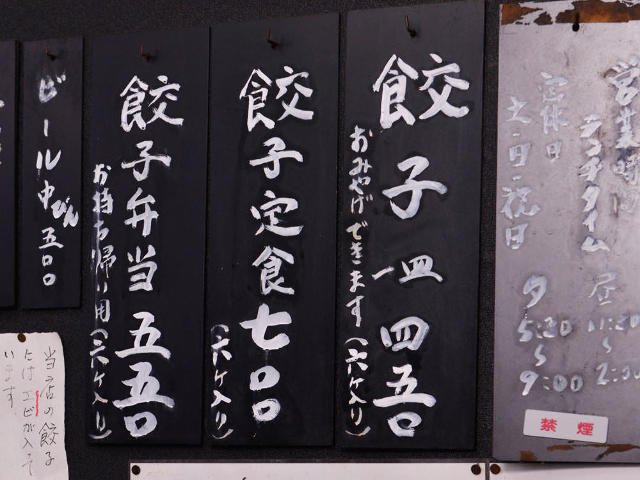 営業時間
ランチタイム
昼 11:20～2:30
定休日
土・日・祝日
夕 5:20～9:00
禁煙
餃子 一皿 四五〇
おみやげできます(六ケ入り)
餃子定食七〇〇
(六ケ入り)
餃子弁当 五五〇
お持ち帰り用(六ケ入り)
ビール中びん 五〇〇
当店の餃子
だけエビが入って
います